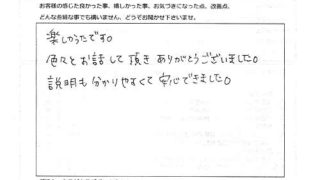 お客様の感じた良かった事、嬉しかった事、お気づきになった点、改善点、
どんな些細な事でも構いません、どうぞお聞かせ下さいませ。
楽しかったです。
色々とお話して頂きありがとうございました。
説明も分かりやすくて安心できました。